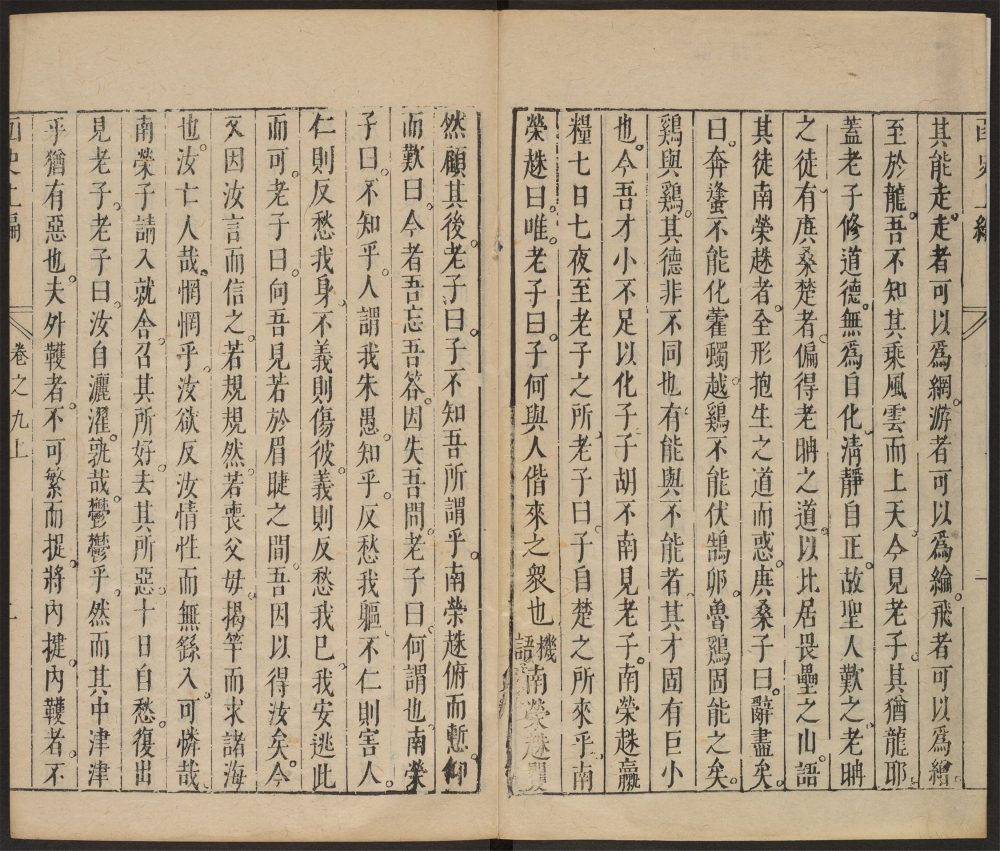 其能走走者可以爲網游者可以爲綸飛者可以爲矰
至於龍吾不知其乘風雲而上天今見老子其猶龍耶
蓋老子修道德無爲自化淸靜自正故聖人歎之老聃
之徒有庚桑楚者偏得老聃之道以比居畏壘之山語
其徒南榮趎者全形抱生之道而惑庚桑子曰辭盡矣
曰奔蜂不能化藿蠋越鷄不能伏鵠卵魯鷄固能之矣
鷄與鷄其德非不同也有能與不能者其才固有巨小
也今吾才小不足以化子子胡不南見老子南榮趎贏
糧七日七夜至老子之所老子曰子自楚之所來乎南
榮趎曰唯老子曰子何與人偕來之衆也機語南榮趎瞿
然顧其後老子曰子不知吾所謂乎南榮趎俯而慙仰
而歎曰今者吾忘吾答因失吾問老子曰何謂也南榮
子曰不知乎人謂我朱愚知乎反愁我軀不仁則害人
仁則反愁我身不義則傷彼義則反愁我已我安逃此
而可老子曰向吾見若於眉睫之間吾因以得汝矣今
又因汝言而信之若規規然若喪父母揭竿而求諸海
也汝亡人哉惘惘乎汝欲反汝情性而無繇入可憐哉
南榮子請入就舍召其所好去其所惡十日自愁復出
見老子老子曰汝自灑濯孰哉鬱鬱乎然而其中津津
乎猶有惡也夫外韄者不可繁而捉將內揵內韄者不
卷之九上